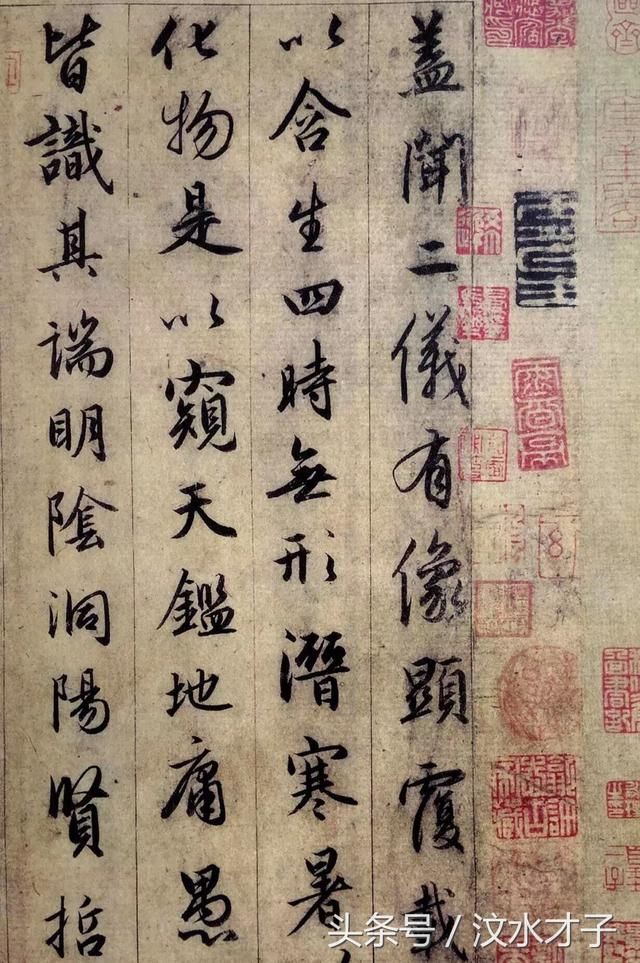 蓋聞二儀有像顯覆載
以含生四時無形潛寒暑
化物是以窺天鑑地庸愚
皆識其端明陰洞陽賢哲
头条号 / 汶水才子